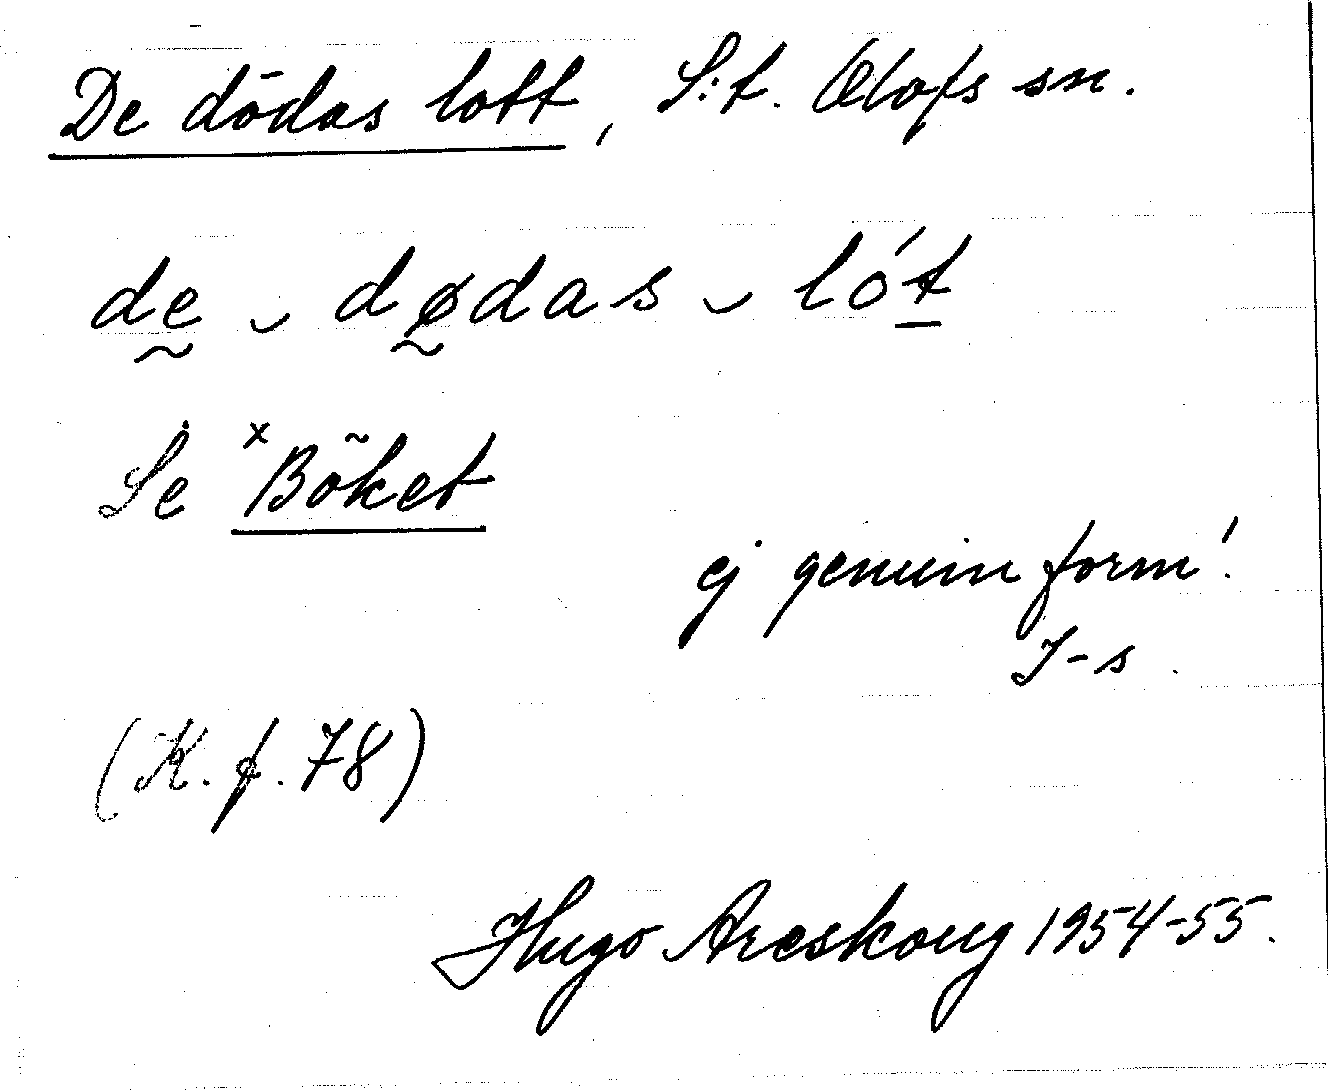 De dödas lott, S:t. Olofs sn.
de ‿ dødas ‿ lót
Se ˣBöket
ej genuin form!
I-s.
(K. f. 78)
Hugo Areskoug 1954-55.